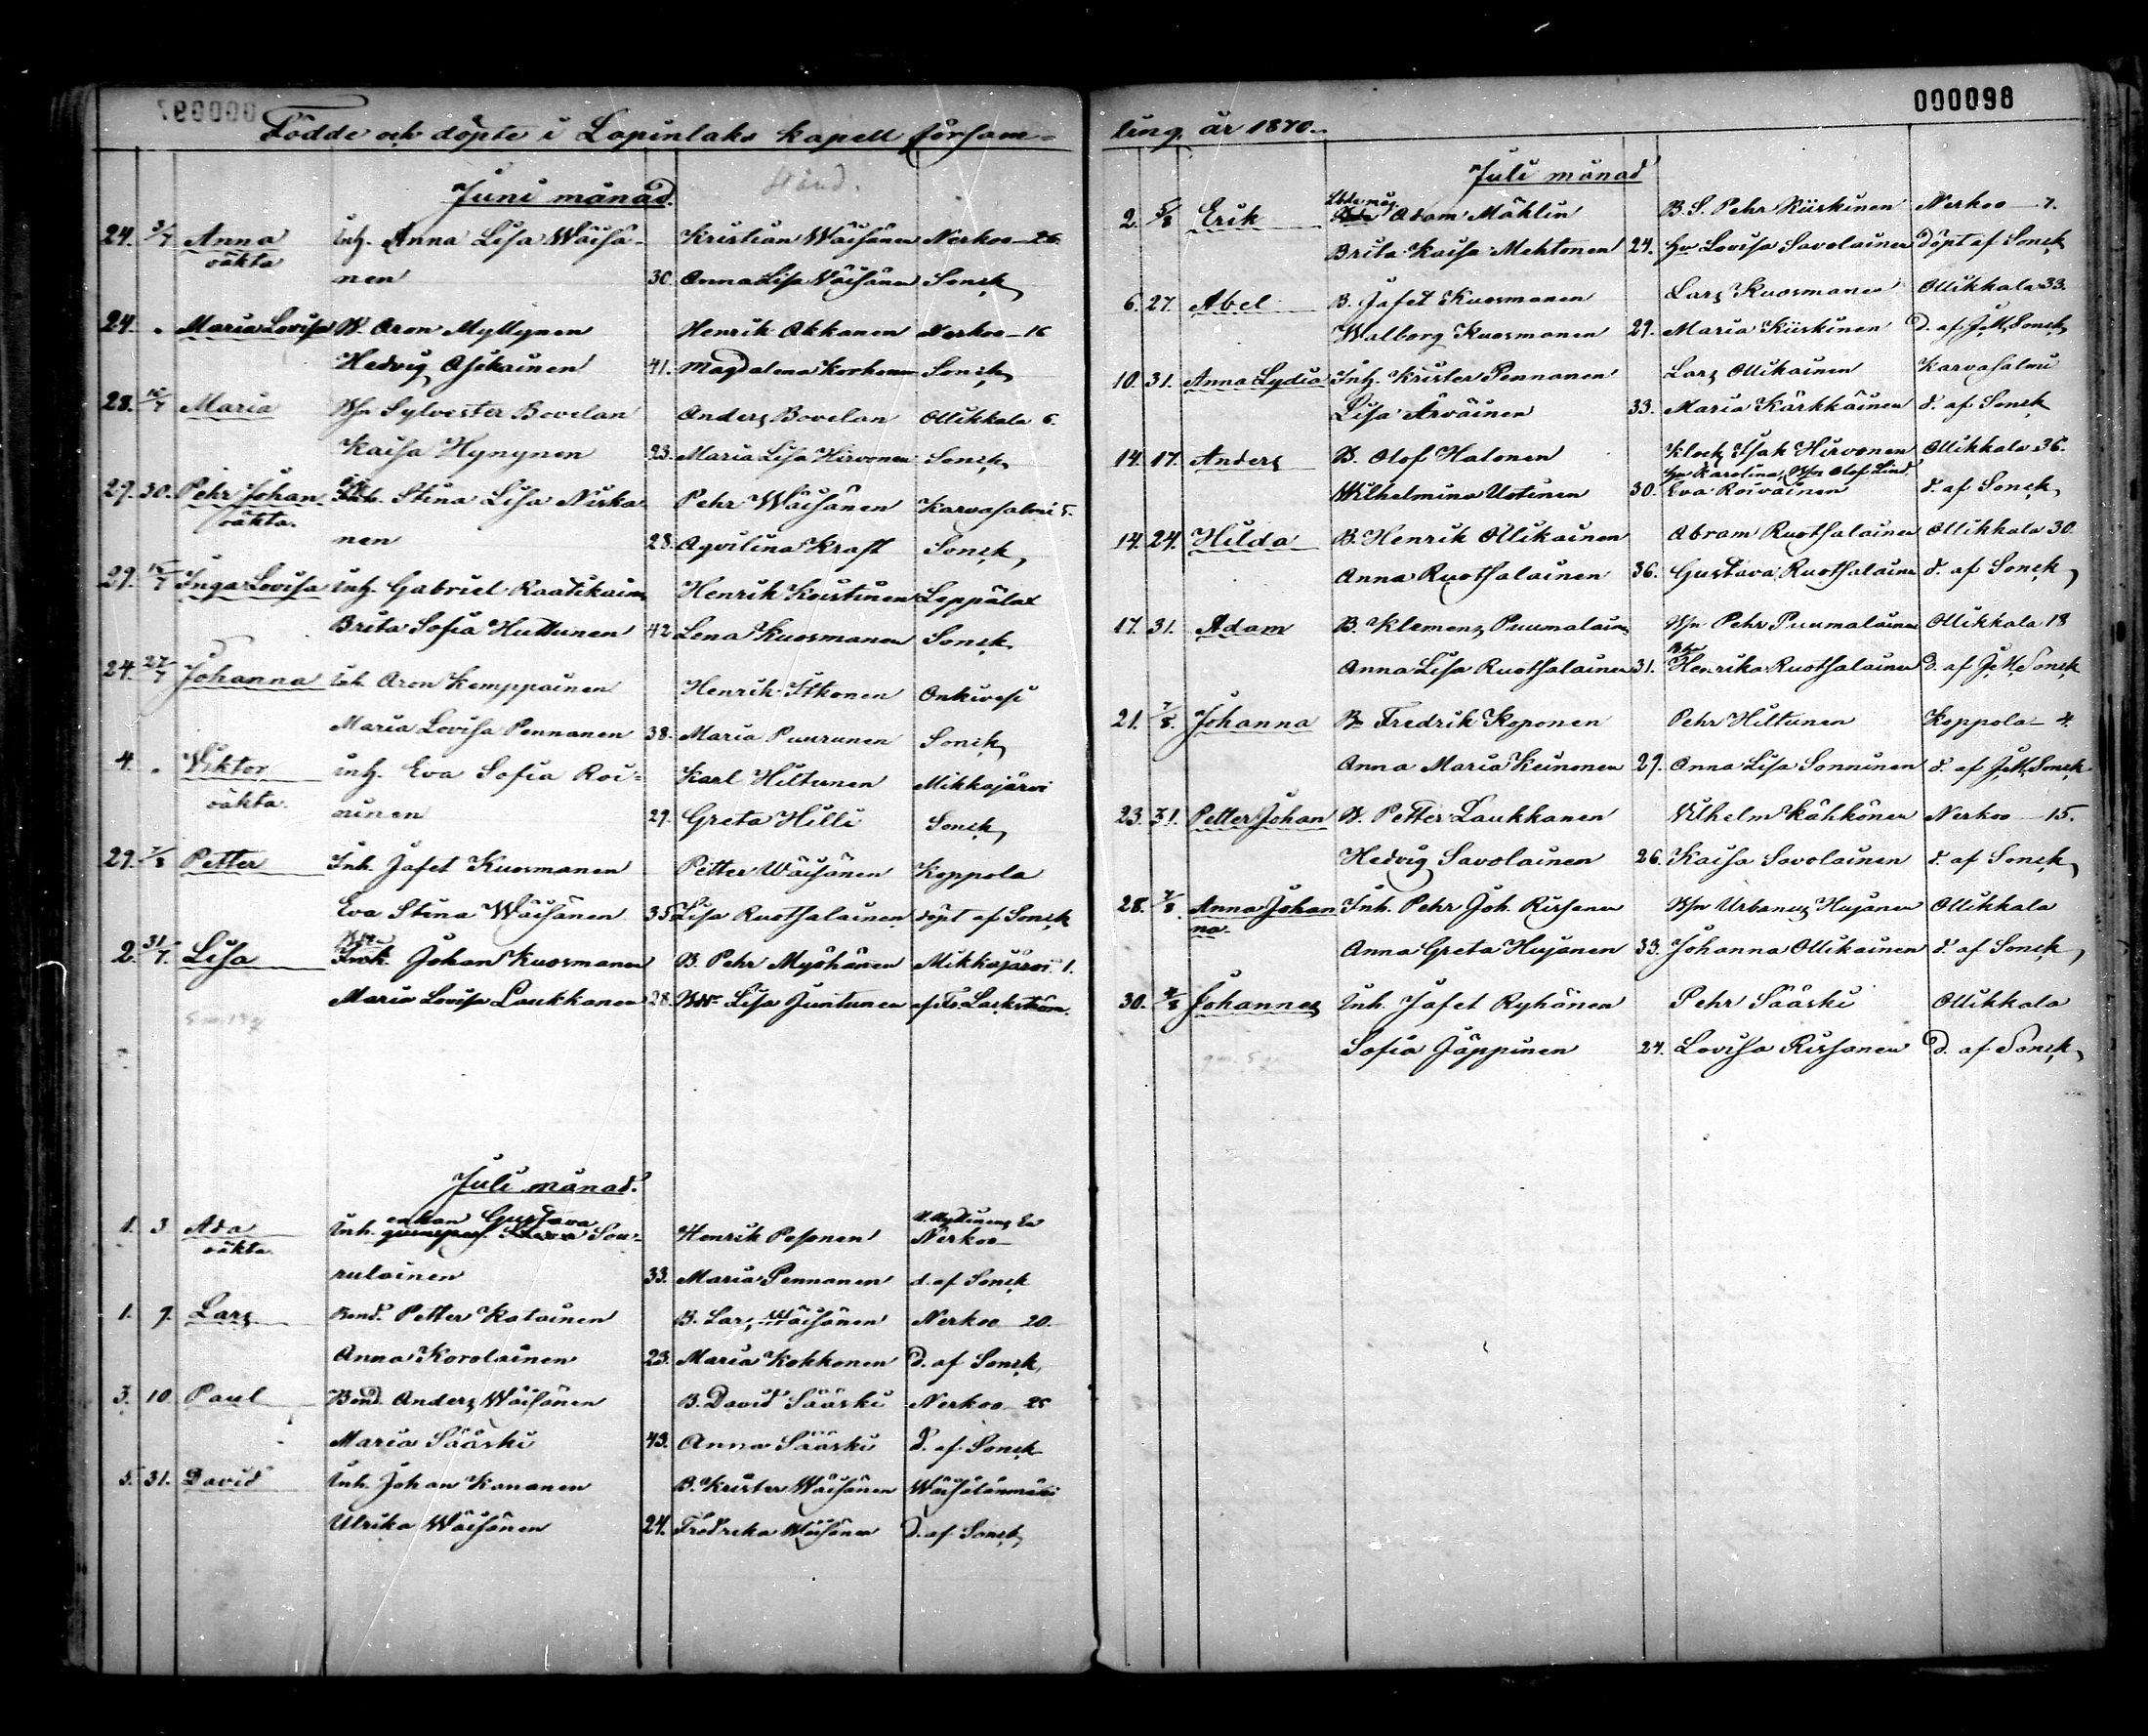 000097
Födde och döpte i Lapinlaks kapell försam=
Juni månad.
24. 3/7 Anna Inh. Anna Lisa Wäisä- Kristian Wäisänen Nerkoo 26
oäkta nen 30. Anna Lisa Wäisänen Sonck
24. " Maria Lovisa B. Aron Myllynen Henrik Akkanen Nerkoo - 16
Hedvig Asikainen 41. Magdalena Korhonen Sonck
28. 10/7 Maria Bsn Sylvester Bovelan Anders Bovelan Ollikkala 6.
Kaisa Hynynen 23. Maria Lisa Hirvonen Sonck
29. 30. Pehr Johan Stina Lisa Niska Pehr Wäisänen Karvasalmi 5.
oäkta. nen 28. Aqvilina Kraft Sonck
29. /7 Inga Lovisa Inh. Gabriel Raatikainen Henrik Koistinen Leppälax
Brita Sofia Huttunen 42 Lena Kuosmanen Sonck
24. 27/7 Johanna Inh. Aron Kemppainen Henrik Itkonen Onkivesi
Maria Lovisa Pennanen 38. Maria Puurunen Sonck
4. " Viktor Inh. Eva Sofia Roi= Karl Hiltunen Mikkajärvi
oäkta. ninen 29. Greta Hilli Sonck
29. 7/8 Petter Inh. Jafet Kuosmanen Petter Wäisänen Koppola
Eva Stina Wäisänen 35 Lisa Ruotsalainen döpt af Sonck
2. 31/7. Lisa Johan Kuosmanen B. Pehr Myöhänen Mikkajärvi 1.
Maria Lovisa Laukkanen 28. Lisa Juntunen af Fr. Lackström.
Juli månad.
enkan Gustava
1. 3 Ada Inh. Sou- Henrik Pesonen Nerkoo
oäkta. rulainen 33. Maria Pennanen d. af Sonck
1. 7. Lars Bond. Petter Katainen B. Lars Wäisänen Nerkoo 20.
Anna Korolainen 23. Maria Kokkonen D. af Sonck
3. 10. Paul Bond. Anders Wäisänen B. David Sääski Nerkoo 25
Maria Sääski 43. Anna Sääski d. af Sonck
5. 31. David Inh. Johan Kananen B. Krister Wäisänen Wäisälänmäki
Ulrika Wäisänen 24. Fredrika Wäisänen d. af Sonck
000098
ling. år 1870.
Juli månad
2. 5/8 Erik Adam Mählin B. S. Pehr Kiiskinen Nerkoo 7.
Brita Kaisa Mehtonen 24. hu Lovisa Savolainen döpt af Sonck
6. 27. Abel B. Jafet Kuosmanen Lars Kuosmanen Ollikkala 33.
Walborg Kuosmanen 29. Maria Kiiskinen d. af J. M. Sonck
10. 31. Anna Lydia Inh. Krister Pennanen Lars Ollikainen Karvasalmi
Lisa Arväinen 33. Maria Kärkkäinen d. af Sonck
14. 17. Anders B. Olof Halonen Klock. Isak Hirvonen Ollikkala 36.
hu Karolina, Bsn Olof Lind,
Wilhelmina Uotinen 30. Eva Roivainen d. af Sonck
14. 24. Hilda B. Henrik Ollikainen Abram Ruotsalainen Ollikkala 30.
Anna Ruotsalainen 36. Gustava Ruotsalainen d. af Sonck
17. 31. Adam B. Klemens Puumalainen Bsn Pehr Puumalainen Ollikkala 18
Anna Lisa Ruotsalainen 31. Henrika Ruotsalainen d. af J. M. Sonck
21. 7/8. Johanna B. Fredrik Koponen Pehr Hiltunen Koppola - 4.
Anna Maria Keinonen 29. Anna Lisa Sonninen d. af J. M. Sonck
23. 31. Petter Johan B. Petter Laukkanen Vilhelm Kähkönen Nerkoo 15.
Hedvig Savolainen 26. Kaisa Savolainen d. af Sonck
28. 7/8. Anna Johan Inh. Pehr Joh. Rissanen Bsn Urbanus Hujanen Ollikkala
na. Anna Greta Hujanen 33. Johanna Ollikainen d. af Sonck
30. /8 Johannes Inh. Jafet Ryhänen Pehr Sääski Ollikkala
Sofia Jäppinen 24. Lovisa Rissanen d. af Sonck